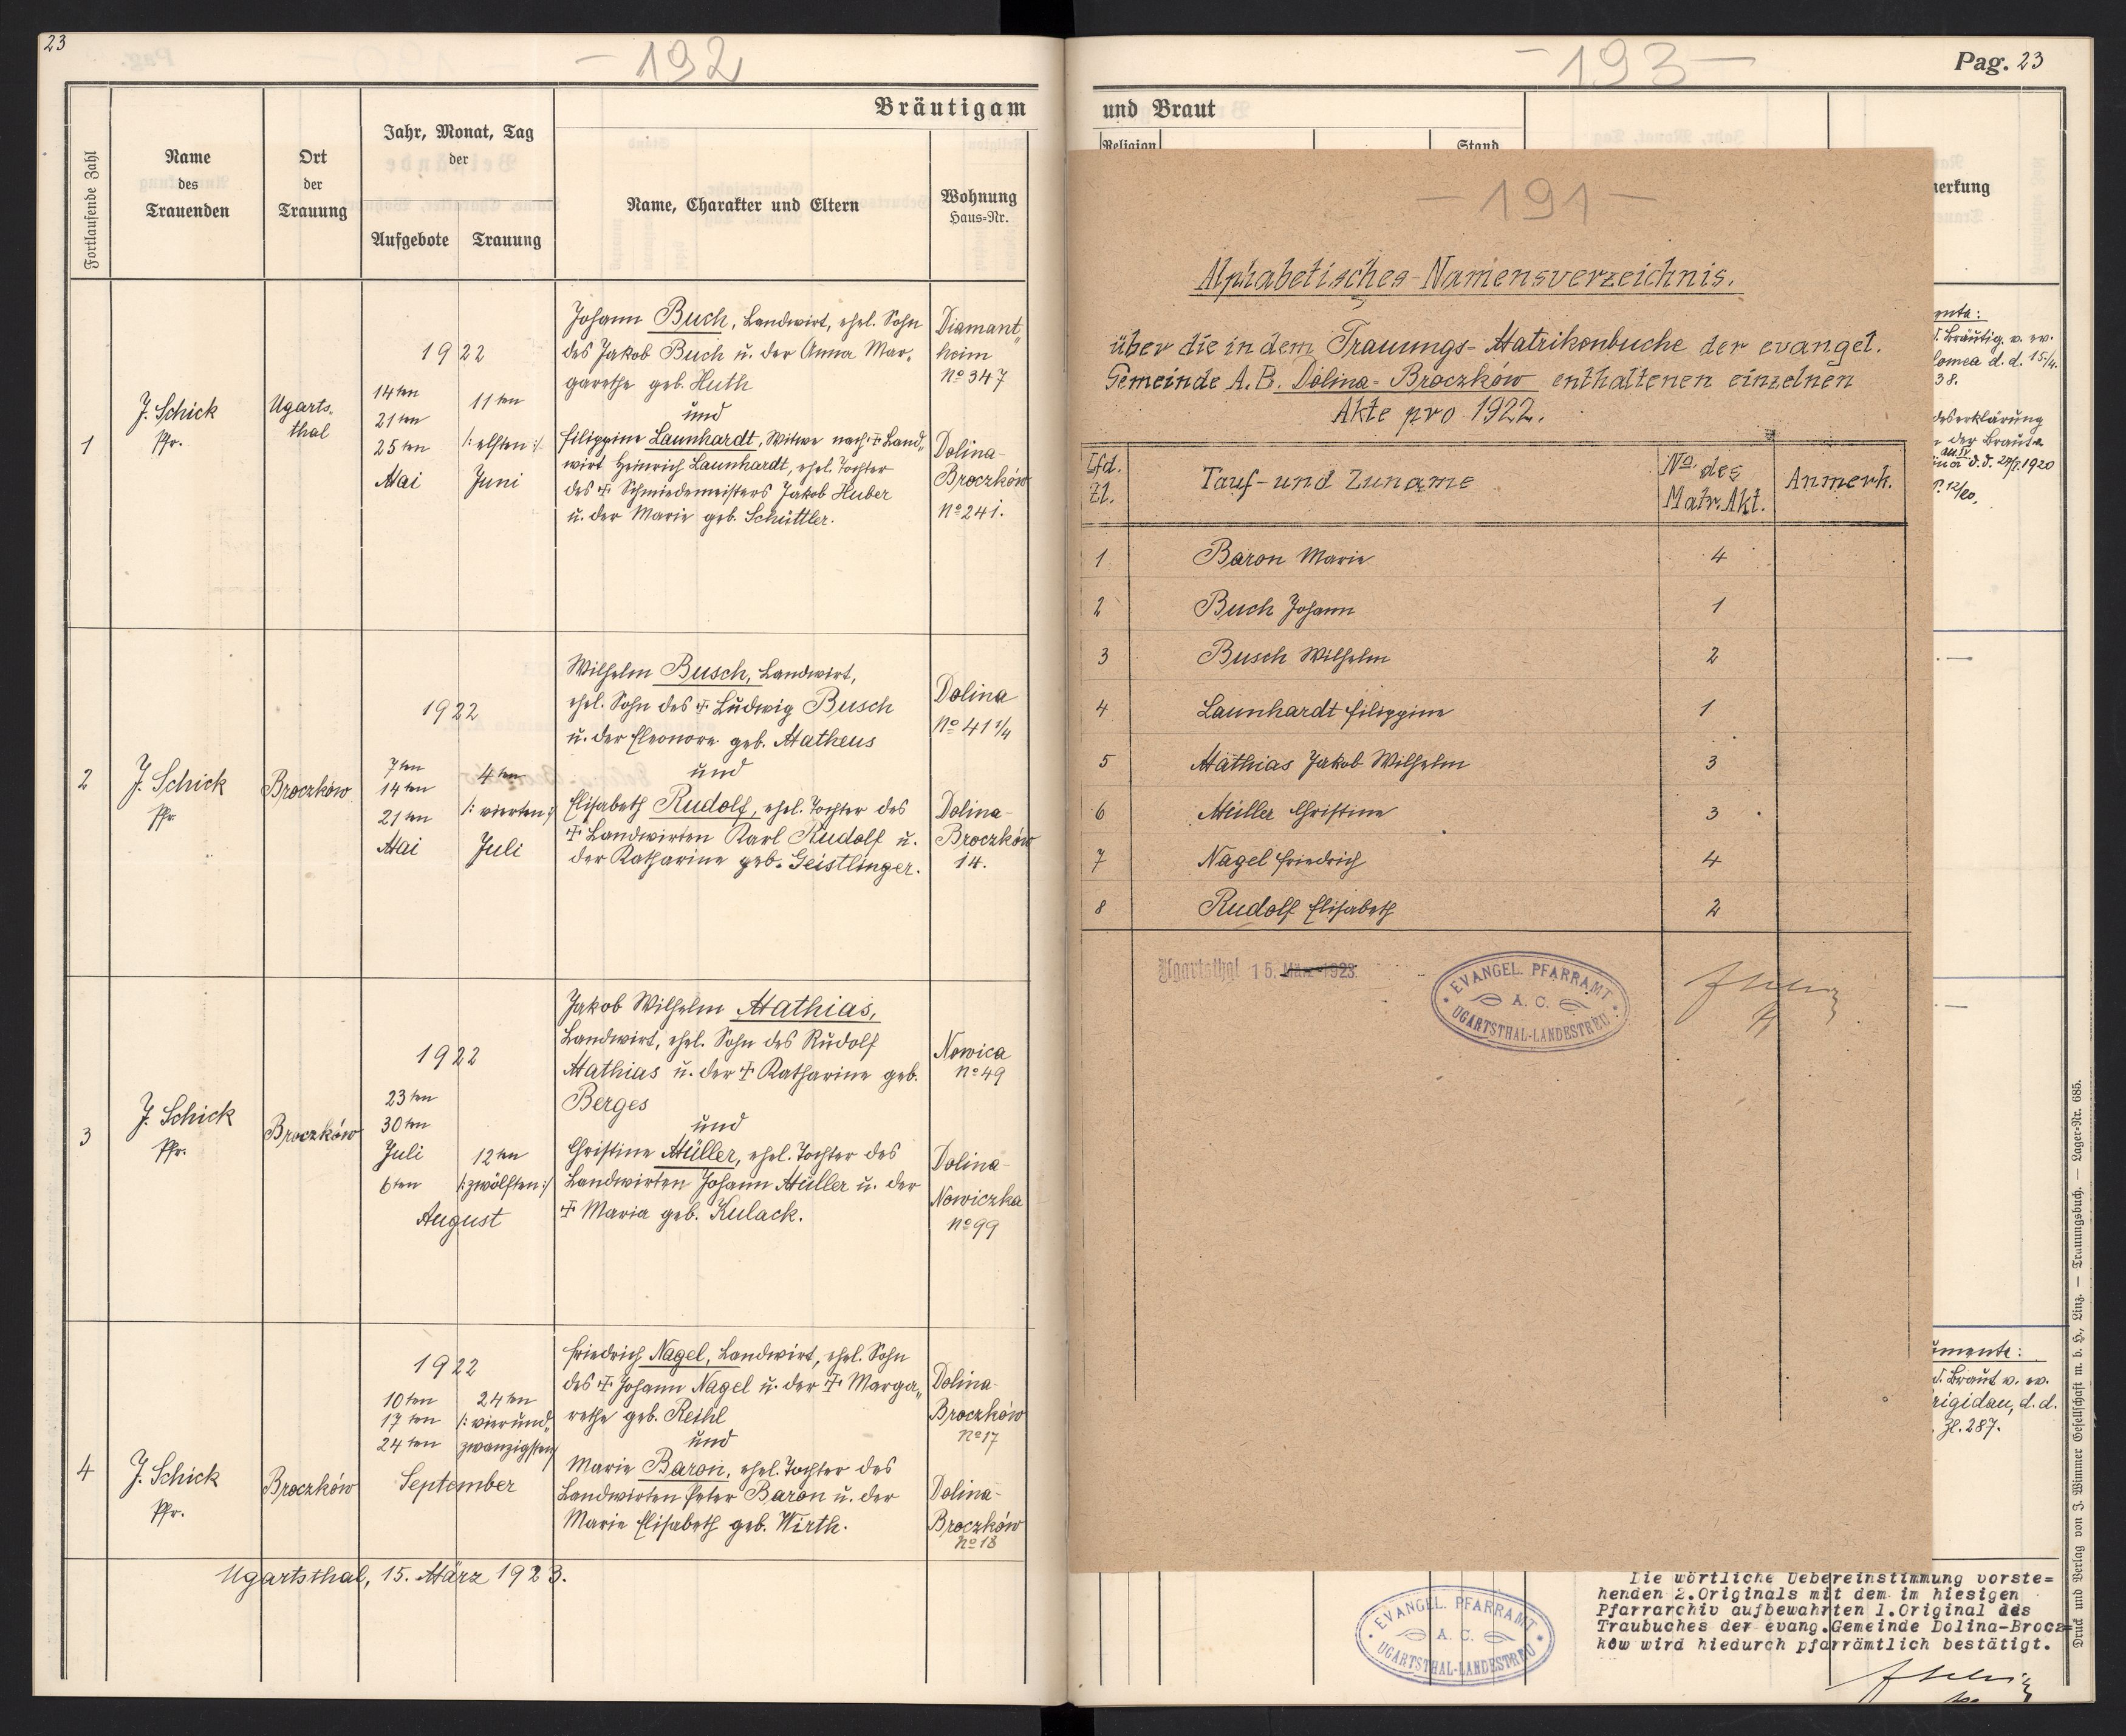 23
- 192
Bräutigam
Fortlaufende Zahl
Name
des
Trauenden
Ort
der
Trauung
Jahr, Monat, Tag
der
Aufgebote
Trauung
Name, Charakter und Eltern
Wohnung
Haus-Nr.
1
J. Schick
Pfr.
Ugarts-
thal
1922
14ten
21ten
25ten
Mai
11ten
/: elften :/
Juni
Johann Buch, Landwirt, ehel. Sohn
des Jakob Buch u. der Anna Mar-
garethe geb. Huth
und
Filippine Launhardt, Witwe nach ☩ Land„
wirt Heinrich Launhardt, ehel. Tochter
des ☩ Schmiedemeisters Jakob Huber
u. der Marie geb. Schüttler.
Diamant„
heim
No 347
Dolina-
Broczków
No 241.
2
J. Schick
Pfr.
Broczków
1922
7ten
14ten
21ten
Mai
4ten
/: vierten :/
Juli
Wilhelm Busch, Landwirt,
ehel. Sohn des ☩ Ludwig Busch
u. der Eleonore geb. Matheus
und
Elisabeth Rudolf, ehel. Tochter des
☩ Landwirten Karl Rudolf u.
der Katharine geb. Geistlinger.
Dolina
No 41 1/4
Dolina-
Broczków
14.
3
J. Schick
Pfr.
Broczków
1922
23ten
30ten
Juli
6ten
12ten
/: zwölften :/
August
Jakob Wilhelm Mathias,
Landwirt, ehel. Sohn des Rudolf
Mathias u. der ☩ Katharine geb.
Berges
und
Christine Müller, ehel. Tochter des
Landwirten Johann Müller u. der
☩ Maria geb. Kulack.
Nowica
No 49
Dolina-
Nowiczka
No 99
4
J. Schick
Pfr.
Broczków
1922
10ten
17ten
24ten
24ten
/: vierund„
zwanzigsten :/
September
Friedrich Nagel, Landwirt, ehel. Sohn
des ☩ Johann Nagel u. der ☩ Marga„
rethe geb. Reihl
und
Marie Baron, ehel. Tochter des
Landwirten Peter Baron u. der
Marie Elisabeth geb. Wirth.
Dolina-
Broczków
No 17
Dolina-
Broczków
No 18
Ugartsthal, 15. März 1923.
- 193 -
Pag. 23
und Braut
Religion
Stand
merkung
- 191 -
Alphabetisches-Namensverzeichnis.
über die in dem Trauungs-Matrikenbuche der evangel.
Gemeinde A. B. Dolina-Broczków enthaltenen einzelnen
Akte pro 1922.
Lfd.
Zl.
Tauf- und Zuname
No. des
Matr. Akt.
Anmerk.
1 Baron Marie 4
2 Buch Johann 1
3 Busch Wilhelm 2
4 Launhardt Filippine 1
5 Mathias Jakob Wilhelm 3
6 Müller Christine 3
7 Nagel Friedrich 4
8 Rudolf Elisabeth 2
Ugartsthal 15. März 1923.
EVANGEL. PFARRAMT
A. C.
UGARTSTHAL-LANDESTREU
ente:
d. Bräutig. v. ev.
lomea d. d. 15/4.
38.
deserklärung
der Braut
d. d. 29/7. 1920
P. 12/20,
umente:
d. Braut v. ev.
rigidau, d. d.
Zl. 287.
EVANGEL. PFARRAMT
A. C.
UGARTSTHAL-LANDESTREU
Die wörtliche Uebereinstimmung vorste=
henden 2.Originals mit dem im hiesigen
Pfarrarchiv aufbewahrten 1.Original des
Traubuches der evang.Gemeinde Dolina-Brocz=
ków wird hiedurch pfarrämtlich bestätigt.
Druck und Verlag von J. Wimmer Gesellschaft m. b. H., Linz. — Trauungsbuch. — Lager-Nr. 685.